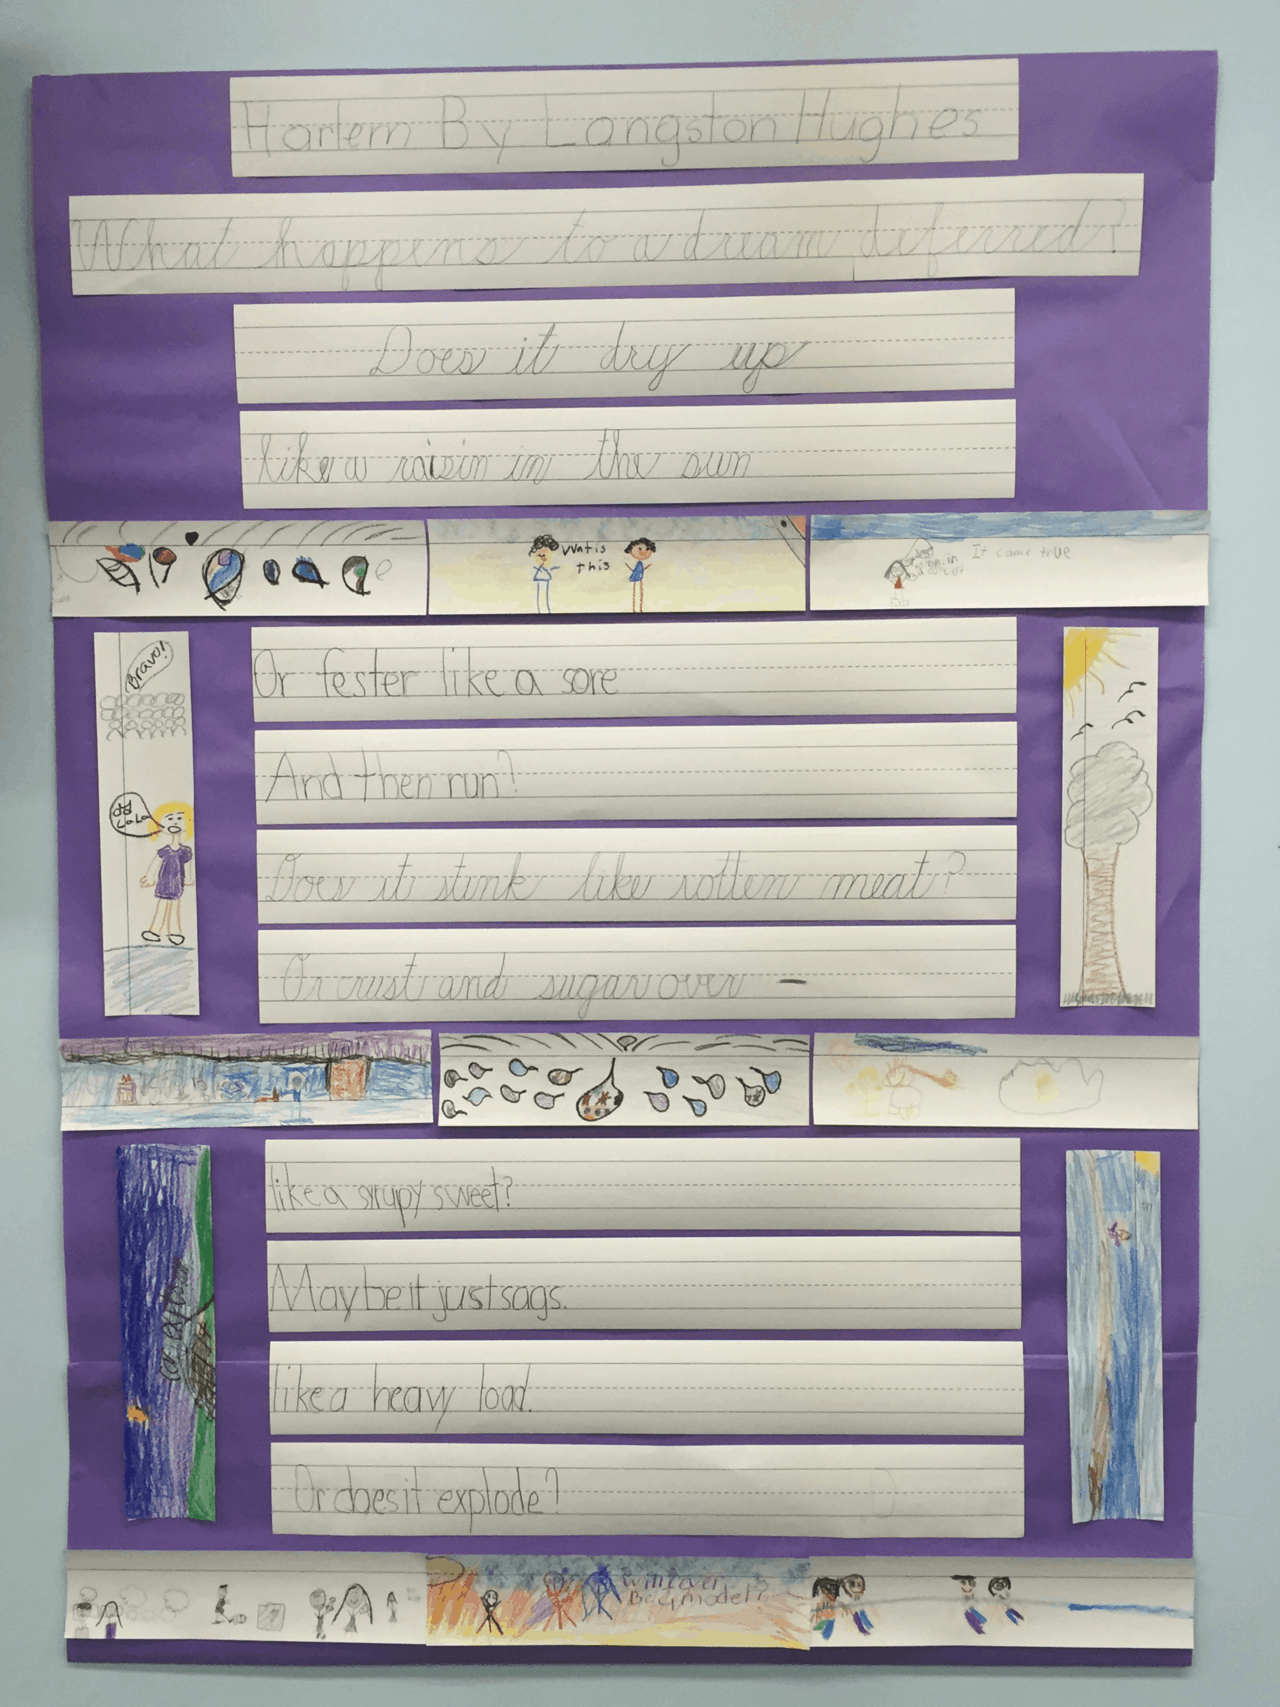 Harlem By Langston Hughes
What happens to a dream deferred?
Does it dry up
like a raisin in the sun
What is
this
It came true
Or fester like a sore
Bravo!
And then run?
La La
Does it stink like rotten meat?
Or crust and sugar over -
like a sirupy sweet?
Maybe it just sags.
like a heavy load.
Or does it explode?